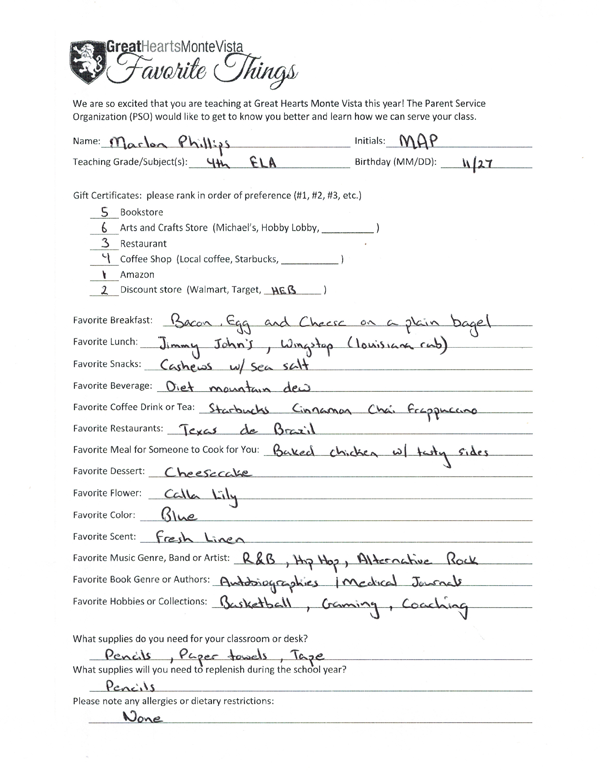 GreatHeartsMonteVista
Favorite Things
We are so excited that you are teaching at Great Hearts Monte Vista this year! The Parent Service
Organization (PSO) would like to get to know you better and learn how we can serve your class.
Name: Marlon Phillips Initials: MAP
Teaching Grade/Subject(s): 4th ELA Birthday (MM/DD): 11/27
Gift Certificates: please rank in order of preference (#1, #2, #3, etc.)
5 Bookstore
6 Arts and Crafts Store (Michael's, Hobby Lobby, __________ )
3 Restaurant
4 Coffee Shop (Local coffee, Starbucks, __________ )
1 Amazon
2 Discount store (Walmart, Target, HEB )
Favorite Breakfast: Bacon, Egg and Cheese on a plain bagel
Favorite Lunch: Jimmy John's, Wingstop (louisiana rub)
Favorite Snacks: Cashews w/ sea salt
Favorite Beverage: Diet mountain dew
Favorite Coffee Drink or Tea: Starbucks Cinnamon Chai Frappuccino
Favorite Restaurants: Texas de Brazil
Favorite Meal for Someone to Cook for You: Baked chicken w/ tasty sides
Favorite Dessert: Cheesecake
Favorite Flower: Calla Lily
Favorite Color: Blue
Favorite Scent: Fresh Linen
Favorite Music Genre, Band or Artist: R&B, Hip Hop, Alternative Rock
Favorite Book Genre or Authors: Autobiographies / Medical Journals
Favorite Hobbies or Collections: Basketball, Gaming, Coaching
What supplies do you need for your classroom or desk?
Pencils, Paper towels, Tape
What supplies will you need to replenish during the school year?
Pencils
Please note any allergies or dietary restrictions:
None